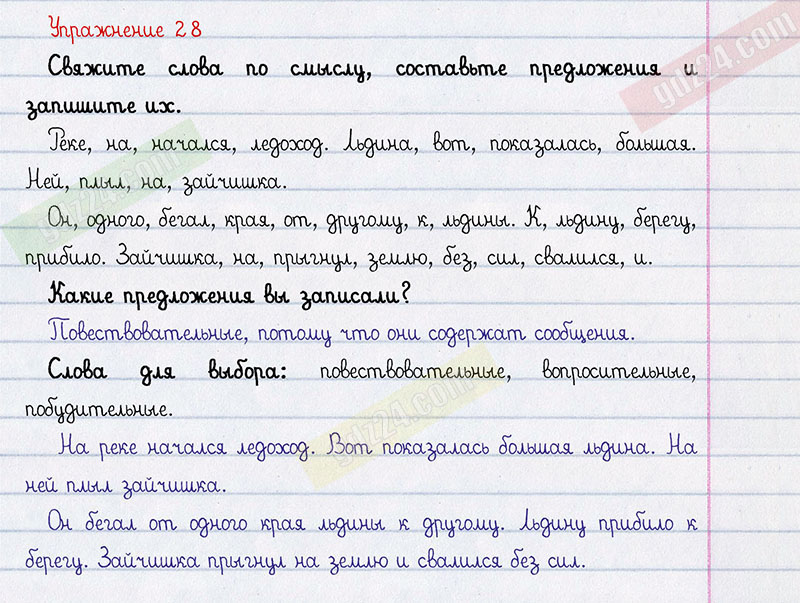 Упражнение 28
Свяжите слова по смыслу, составьте предложения и
запишите их.
Реке, на, начался, ледоход. Льдина, вот, показалась, большая.
Ней, плыл, на, зайчишка.
Он, одного, бегал, края, от, другому, к, льдины. К, льдину, берегу,
прибило. Зайчишка, на, прыгнул, землю, без, сил, свалился, и.
Какие предложения вы записали?
Повествовательные, потому что они содержат сообщения.
Слова для выбора: повествовательные, вопросительные,
побудительные.
На реке начался ледоход. Вот показалась большая льдина. На
ней плыл зайчишка.
Он бегал от одного края льдины к другому. Льдину прибило к
берегу. Зайчишка прыгнул на землю и свалился без сил.
gdz24.com
gdz24.com
gdz24.com